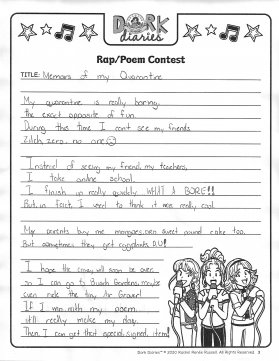 DORK
diaries
Rap/Poem Contest
TITLE: Memoirs of my Quarantine
My quarantine is really boring,
the exact opposite of fun.
During this time I can't see my friends
Zilch, zero, no one
Instead of seeing my friend, my teachers,
I take online school.
I finish in really quickly WHAT A BORE!!
But, in fact, I used to think it was really cool.
My parents buy me mangoes, even sweet round cake too.
But sometimes they get eggplants EW!
I hope the will soon be over,
so I can go to Busch Gardens, maybe
even ride the tiny Air Grover!
If I win with my poem,
it'll really make my day.
Then, I can get that special signed item!
Dork Diaries™ © 2020 Rachel Renée Russell. All Rights Reserved. 3